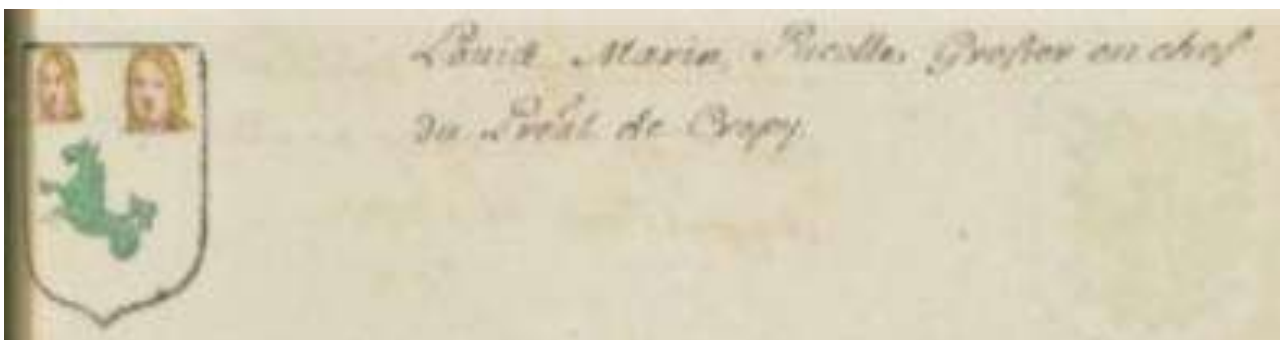 Louis Marin, Ricolle, Greffier en chef
du Presal de Crepy.